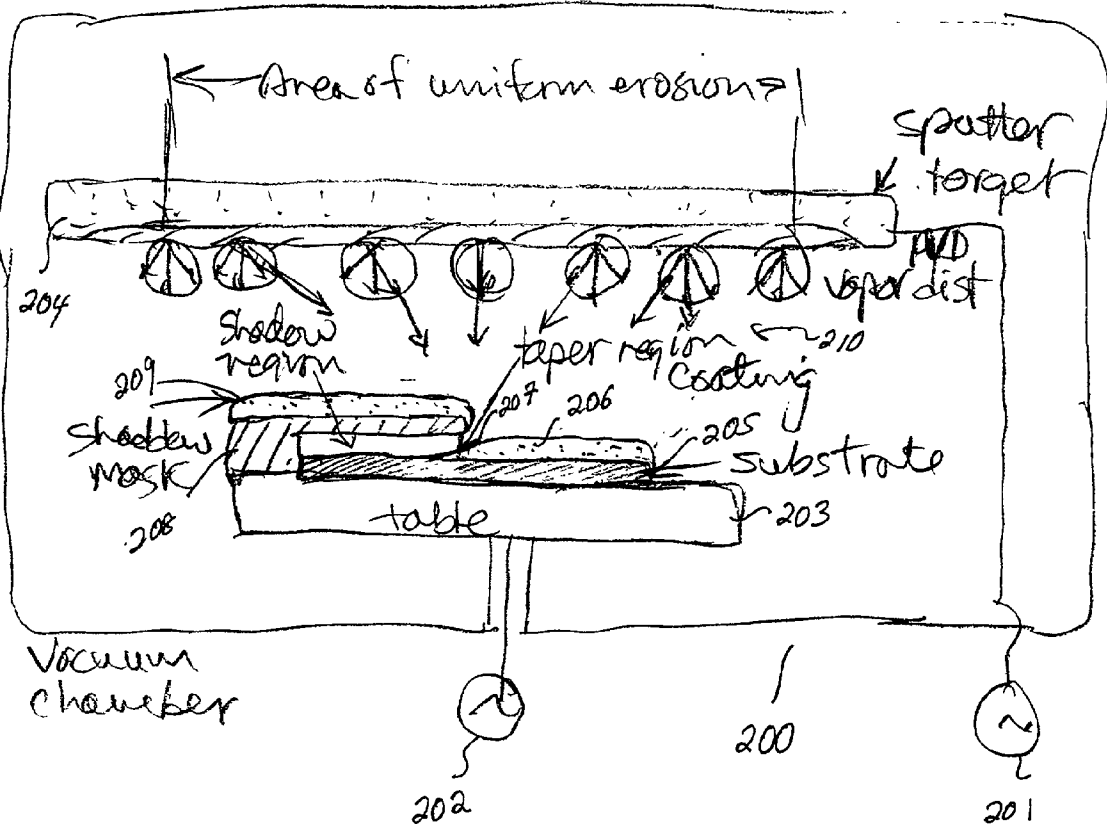 Area of uniform erosion
sputter
target
PVD
vapor dist
204
shadow
region
taper region
210
coating
209
207
206
205
shadow
mask
substrate
208
table
203
vacuum
chamber
200
202
201